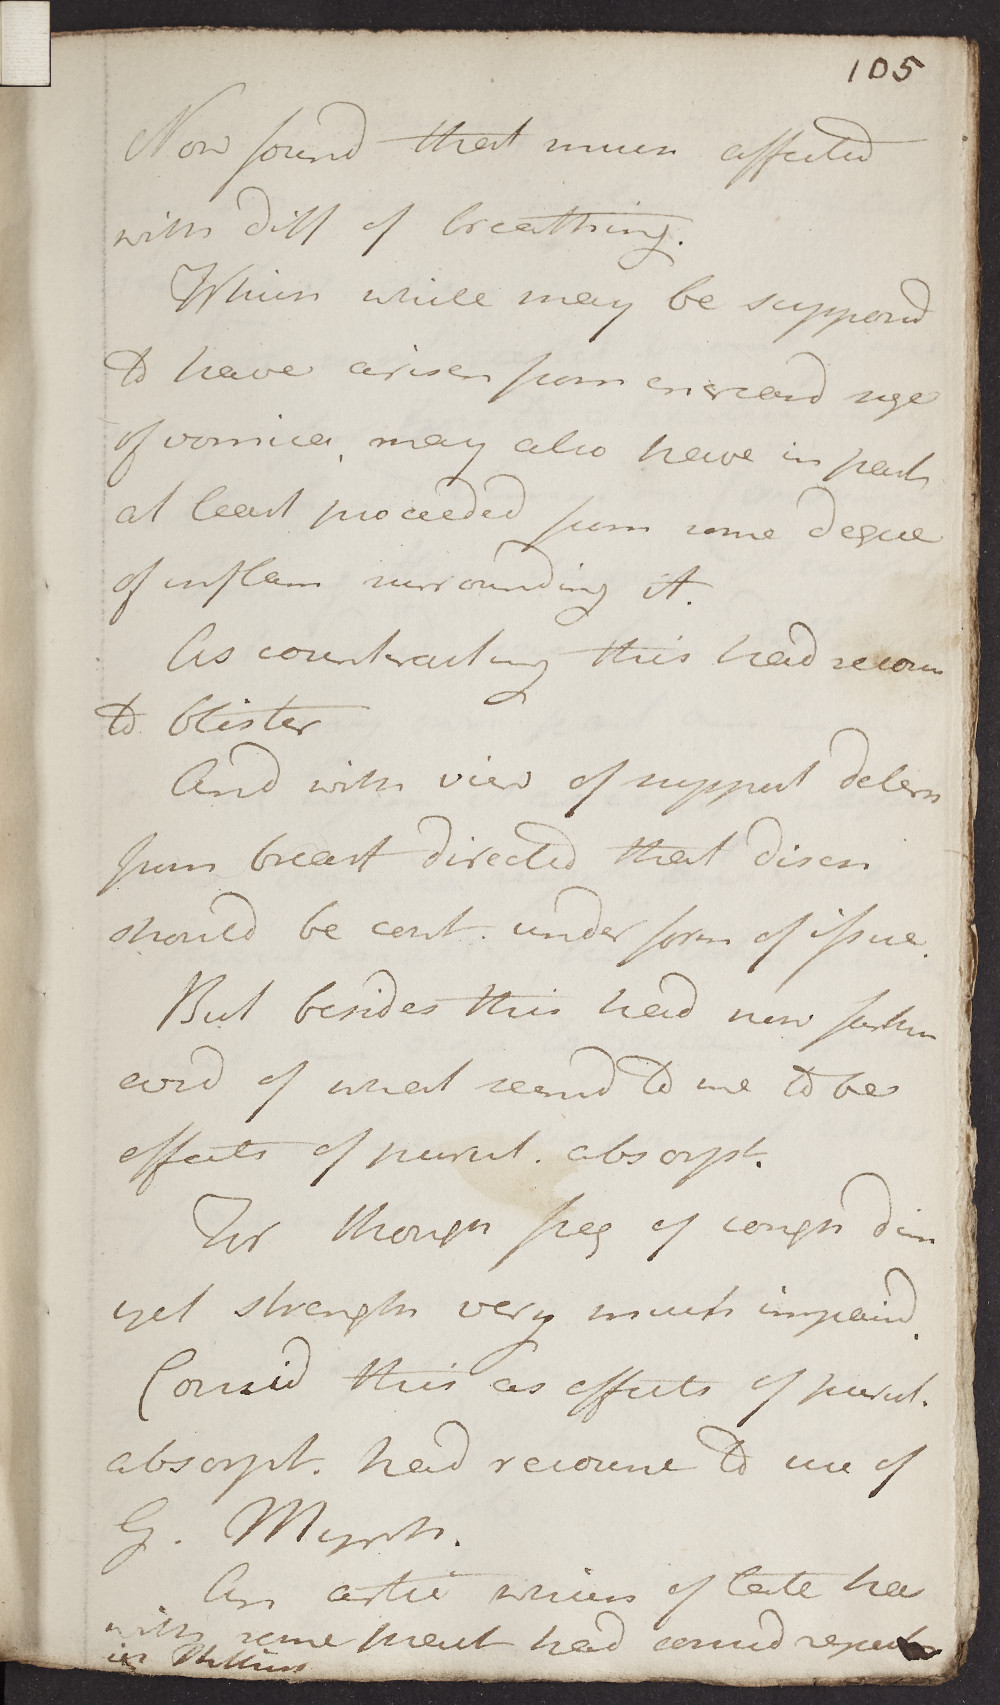 105
Now found that much affected
with diff of breathing.
Which while may be supposed
to have arisen from increasd size
of vomica, may also have in part
at least proceeded from some degree
of inflam surrounding it.
As counteracting this had recour
to blister
And with view of support determ
from breast directed that disch
should be cont. under form of issue.
But besides this had now farther
evid of what seemd to me to be
effects of purul. absorpt.
For though freq of cough dim
yet strength very much impaird.
Consid this as effects of purul.
absorpt. had recourse to use of
G. Myrrh.
An artic which of late has
with some pract had consid reputa
in Phthisis